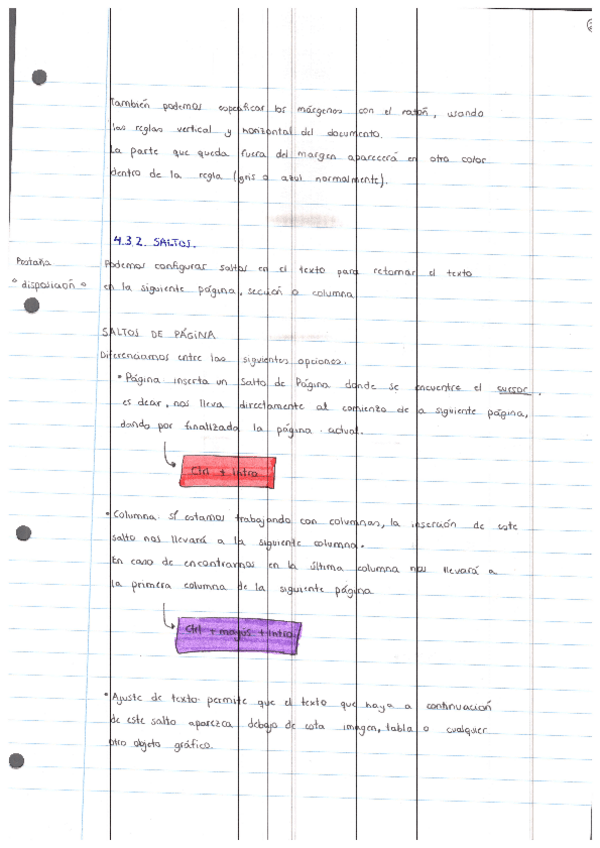 También podemos especificar los márgenes con el ratón, usando
las reglas vertical y horizontal del documento.
La parte que queda fuera del margen aparecerá en otro color
dentro de la regla (gris o azul normalmente).
4.3.2. SALTOS.
Pestaña
"disposición"
Podemos configurar saltos en el texto para retomar el texto
en la siguiente página, sección o columna
SALTOS DE PÁGINA
Diferenciamos entre las siguientes opciones.
• Página inserta un Salto de Página donde se encuentre el cursor,
es decir, nos lleva directamente al comienzo de a siguiente página,
dando por finalizada la página actual.
Ctrl + Intro
• Columna: Si estamos trabajando con columnas, la inserción de este
salto nos llevará a la siguiente columna.
En caso de encontrarnos en la última columna nos llevará a
la primera columna de la siguiente página
Ctrl + mayús + Intro
• Ajuste de texto: permite que el texto que haya a continuación
de este salto aparezca debajo de esta imagen, tabla o cualquier
otro objeto gráfico.